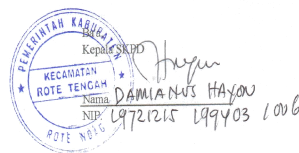 PEMERINTAH KABUPATEN
KECAMATAN
ROTE TENGAH
ROTE NDAO
Kepala SKPD
Nama DAMIANUS HAYON
NIP. 19721215 199403 1006